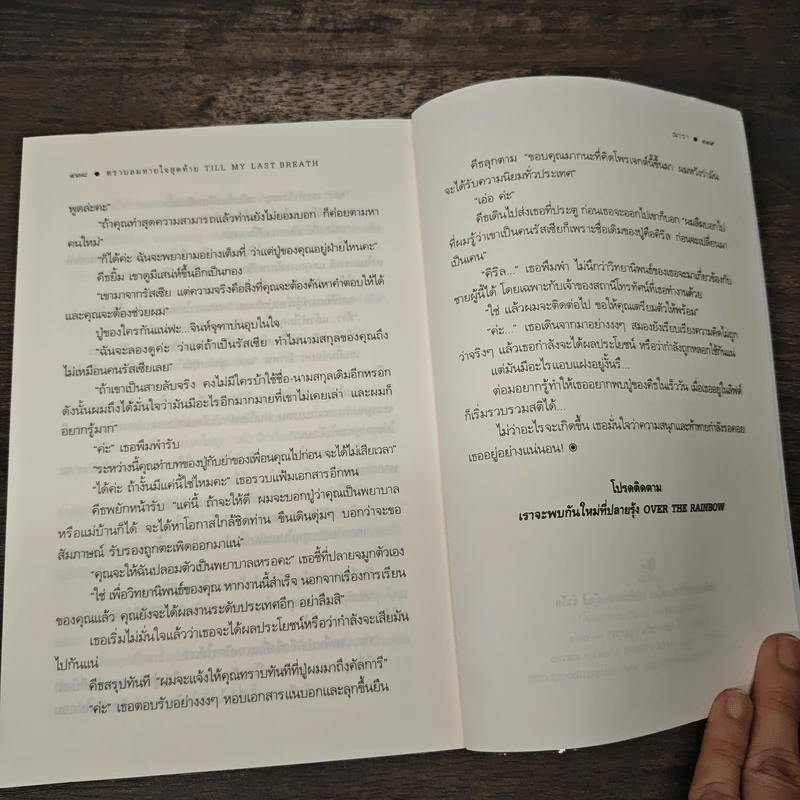 ๔๓๘ ● ตราบลมหายใจสุดท้าย TILL MY LAST BREATH
พูดล่ะคะ”
“ถ้าคุณทำสุดความสามารถแล้วท่านยังไม่ยอมบอก ก็ค่อยตามหา
คนใหม่”
“ก็ได้ค่ะ ฉันจะพยายามอย่างเต็มที่ ว่าแต่ปู่ของคุณอยู่ฝ่ายไหนคะ”
คีธยิ้ม เขาดูมีเสน่ห์ขึ้นอีกเป็นกอง
“เขามาจากรัสเซีย แต่ความจริงคือสิ่งที่คุณจะต้องค้นหาคำตอบให้ได้
และคุณจะต้องช่วยผม”
ปู่ของใครกันแน่ฟะ...จินห์จุฑาบ่นอุบในใจ
“ฉันจะลองดูค่ะ ว่าแต่ถ้าเป็นรัสเซีย ทำไมนามสกุลของคุณถึง
ไม่เหมือนคนรัสเซียเลย”
“ถ้าเขาเป็นสายลับจริง คงไม่มีใครบ้าใช้ชื่อ-นามสกุลเดิมอีกหรอก
ดังนั้นผมถึงได้มั่นใจว่ามันมีอะไรอีกมากมายที่เขาไม่เคยเล่า และผมก็
อยากรู้มาก”
“ค่ะ” เธอพึมพำรับ
“ระหว่างนี้คุณทำบทของปู่กับย่าของเพื่อนคุณไปก่อน จะได้ไม่เสียเวลา”
“ได้ค่ะ ถ้างั้นมีแค่นี้ใช่ไหมคะ” เธอรวบแฟ้มเอกสารอีกหน
คีธพยักหน้ารับ “แค่นี้ ถ้าจะให้ดี ผมจะบอกปู่ว่าคุณเป็นพยาบาล
หรือแม่บ้านก็ได้ จะได้หาโอกาสใกล้ชิดท่าน ขืนเดินดุ่มๆ บอกว่าจะขอ
สัมภาษณ์ รับรองถูกตะเพิดออกมาแน่”
“คุณจะให้ฉันปลอมตัวเป็นพยาบาลเหรอคะ” เธอชี้ที่ปลายจมูกตัวเอง
“ใช่ เพื่อวิทยานิพนธ์ของคุณ หากงานนี้สำเร็จ นอกจากเรื่องการเรียน
ของคุณแล้ว คุณยังจะได้ผลงานระดับประเทศอีก อย่าลืมสิ”
เธอเริ่มไม่มั่นใจแล้วว่าเธอจะได้ผลประโยชน์หรือว่ากำลังจะเสียมัน
ไปกันแน่
คีธสรุปทันที “ผมจะแจ้งให้คุณทราบทันทีที่ปู่ผมมาถึงคัลการี”
“ค่ะ” เธอตอบรับอย่างงงๆ หอบเอกสารแนบอกและลุกขึ้นยืน
ณารา ● ๔๓๙
คีธลุกตาม “ขอบคุณมากนะที่คิดโพรเจกต์นี้ขึ้นมา ผมหวังว่ามัน
จะได้รับความนิยมทั่วประเทศ”
“เอ่อ ค่ะ”
คีธเดินไปส่งเธอที่ประตู ก่อนเธอจะออกไปเขาก็บอก “ผมลืมบอกไป
ที่ผมรู้ว่าเขาเป็นคนรัสเซียก็เพราะชื่อเดิมของปู่คือคิริล ก่อนจะเปลี่ยนมา
เป็นเคน”
“คิริล...” เธอพึมพำ ไม่นึกว่าวิทยานิพนธ์ของเธอจะมาเกี่ยวข้องกับ
ชายผู้นี้ได้ โดยเฉพาะกับเจ้าของสถานีโทรทัศน์ที่เธอทำงานด้วย
“ใช่ แล้วผมจะติดต่อไป ขอให้คุณเตรียมตัวให้พร้อม”
“ค่ะ...” เธอเดินจากมาอย่างงงๆ สมองยังเรียบเรียงความคิดไม่ถูก
ว่าจริงๆ แล้วเธอกำลังจะได้ผลประโยชน์ หรือว่ากำลังถูกหลอกใช้กันแน่
แต่มันมีอะไรแอบแฝงอยู่งั้นรึ...
ต่อมอยากรู้ทำให้เธออยากพบปู่ของคีธในเร็ววัน เมื่อเธออยู่ในลิฟต์
ก็เริ่มรวบรวมสติได้...
ไม่ว่าอะไรจะเกิดขึ้น เธอมั่นใจว่าความสนุกและท้าทายกำลังรอคอย
เธออยู่อย่างแน่นอน!
โปรดติดตาม
เราจะพบกันใหม่ที่ปลายรุ้ง OVER THE RAINBOW